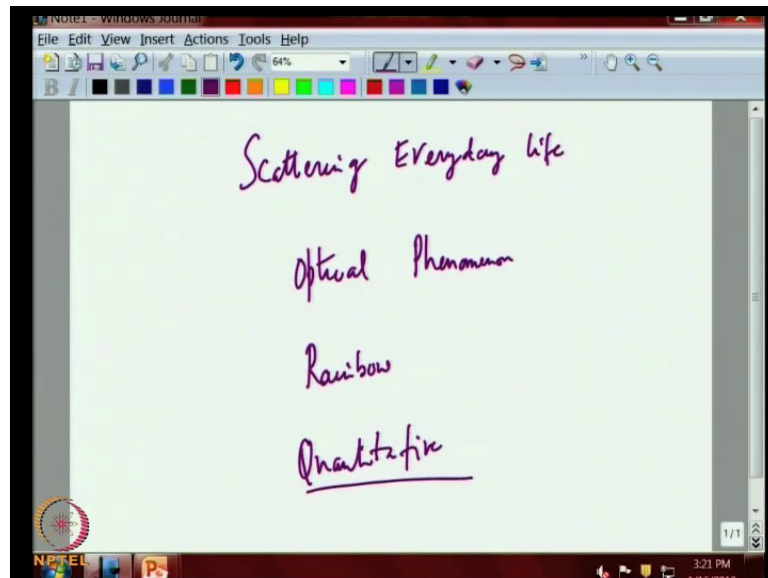 Note1 - Windows Journal
File Edit View Insert Actions Tools Help
64%
B I
Scattering Everyday life
Optical Phenomenon
Rainbow
Quantitative
1/1
NPTEL
3:21 PM